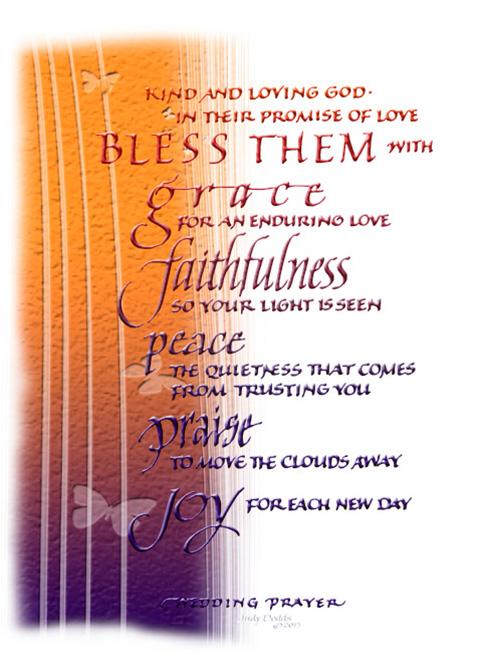 KIND AND LOVING GOD·
IN THEIR PROMISE OF LOVE
BLESS THEM WITH
grace
FOR AN ENDURING LOVE
faithfulness
SO YOUR LIGHT IS SEEN
peace
THE QUIETNESS THAT COMES
FROM TRUSTING YOU
praise
TO MOVE THE CLOUDS AWAY
JOY FOR EACH NEW DAY
WEDDING PRAYER
Judy Dodds